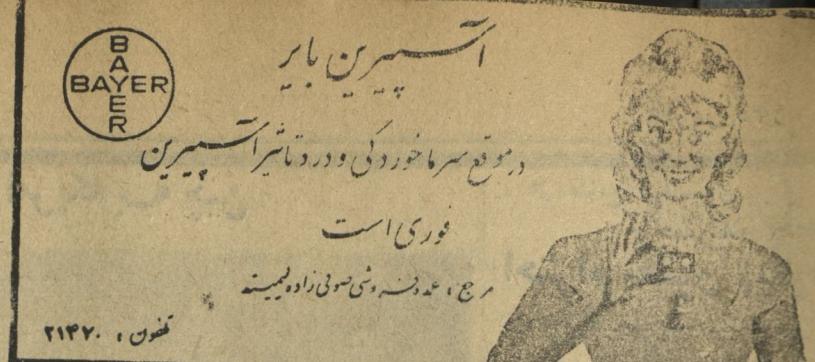 BAYER
BAYER
آسپیرین بایر
در موقع سرماخوردگی و درد تاثیر آسپیرین
فوری است
مرجع : عمده فروشی صوفی زاده لیمیتد
تلفون : ۲۱۴۷۰